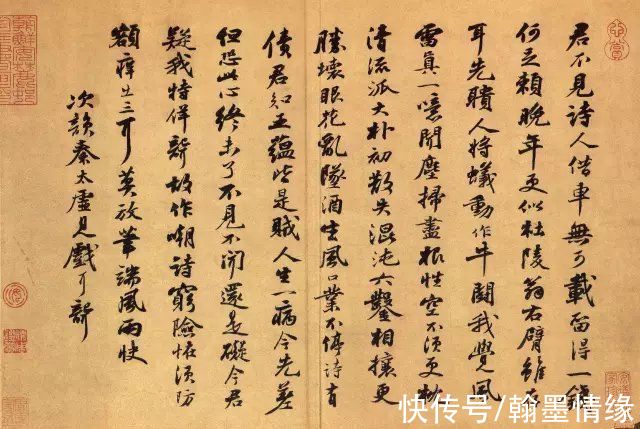 君不見詩人借車無可載留得一錢
何足賴晚年更似杜陵翁右臂雖存
耳先聵人將蟻動作牛鬭我覺風
雷真一噫聞塵掃盡根性空不須更枕
清流派大朴初散失混沌六鑿相攘更
勝壞眼花亂墜酒生風口業不停詩有
債君知五蘊皆是賊人生一病今先差
但恐此心終未了不見不聞還是礙今君
疑我特佯聾故作嘲詩窮險怪須防
額癢出三耳莫放筆端風雨快
次韻秦太虛見戲耳聾
快传号/翰墨情缘